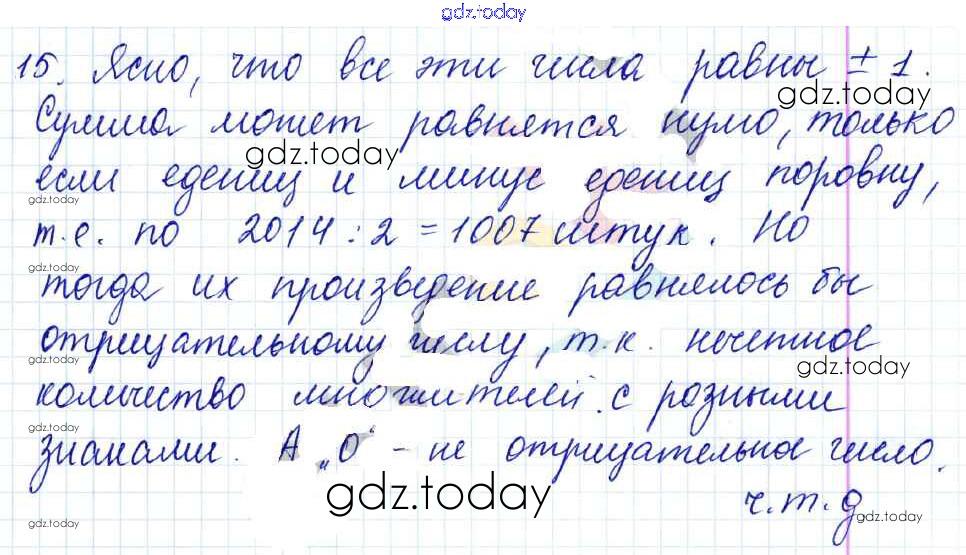 gdz.today
15. Ясно, что все эти числа равны ± 1.
gdz.today
Сумма может равнятся нулю, только
gdz.today
если едениц и минус едениц поровну,
gdz.today
т.е. по 2014 : 2 = 1007 штук. Но
gdz.today
тогда их произведение равнялось бы
отрицательному числу, т.к. нечетное
gdz.today
gdz.today
количество множителей с разными
gdz.today
знаками. А „0“ - не отрицательное число.
gdz.today
ч.т.д
gdz.today
gdz.today